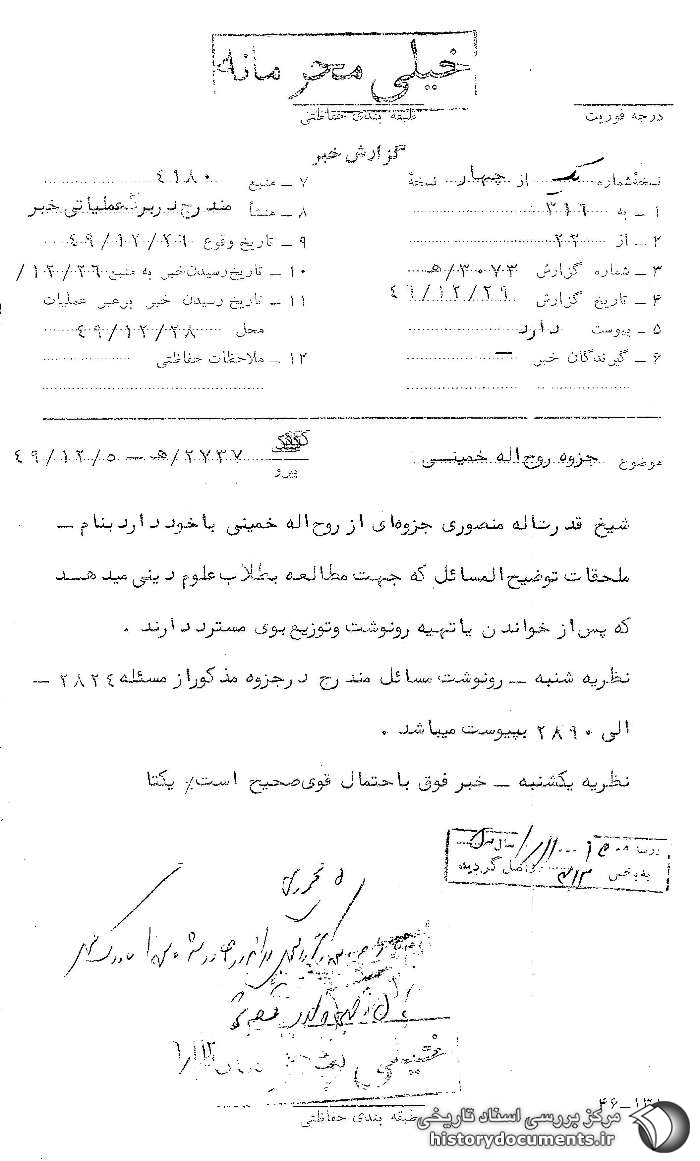 خیلی محرمانه
درجه فوریت
طبقه بندی حفاظتی
گزارش خبر
نسخه شماره یک از چهار نسخه
۱ ـ به ۳۱۶
۲ ـ از ۲۲
۳ ـ شماره گزارش ۳۰۷۳/هـ
۴ ـ تاریخ گزارش ۴۹/۱۲/۲۹
۵ ـ پیوست دارد
۶ ـ گیرندگان خبر ـ
۷ ـ منبع ۴۱۸۰
۸ ـ منشأ مندرج در برگ عملیاتی خبر
۹ ـ تاریخ وقوع ۴۹/۱۲/۲۶
۱۰ ـ تاریخ رسیدن خبر به منبع ۱۲/۲۶/
۱۱ ـ تاریخ رسیدن خبر برهبر عملیات
محل ۴۹/۱۲/۲۸
۱۲ ـ ملاحظات حفاظتی
موضوع جزوه روح اله خمینی
پیرو ۲۷۳۷/هـ ـ ۴۹/۱۲/۵
شیخ قدرت اله منصوری جزوه‌ای از روح اله خمینی باخود دارد بنام ـ
ملحقات توضیح المسائل که جهت مطالعه بطلاب علوم دینی میدهد
که پس از خواندن یا تهیه رونوشت وتوزیع بوی مسترد دارند .
نظریه شنبه ـ رونوشت مسائل مندرج درجزوه مذکور از مسئله ۲۸۲۴ ـ
الی ۲۸۹۰ بپیوست میباشد .
نظریه یکشنبه ـ خبر فوق باحتمال قوی صحیح است٪ یکتا
به بخش ۳۱۲ واصل گردید
خیلی محرمانه
طبقه بندی حفاظتی
مرکز بررسی اسناد تاریخی
historydocuments.ir